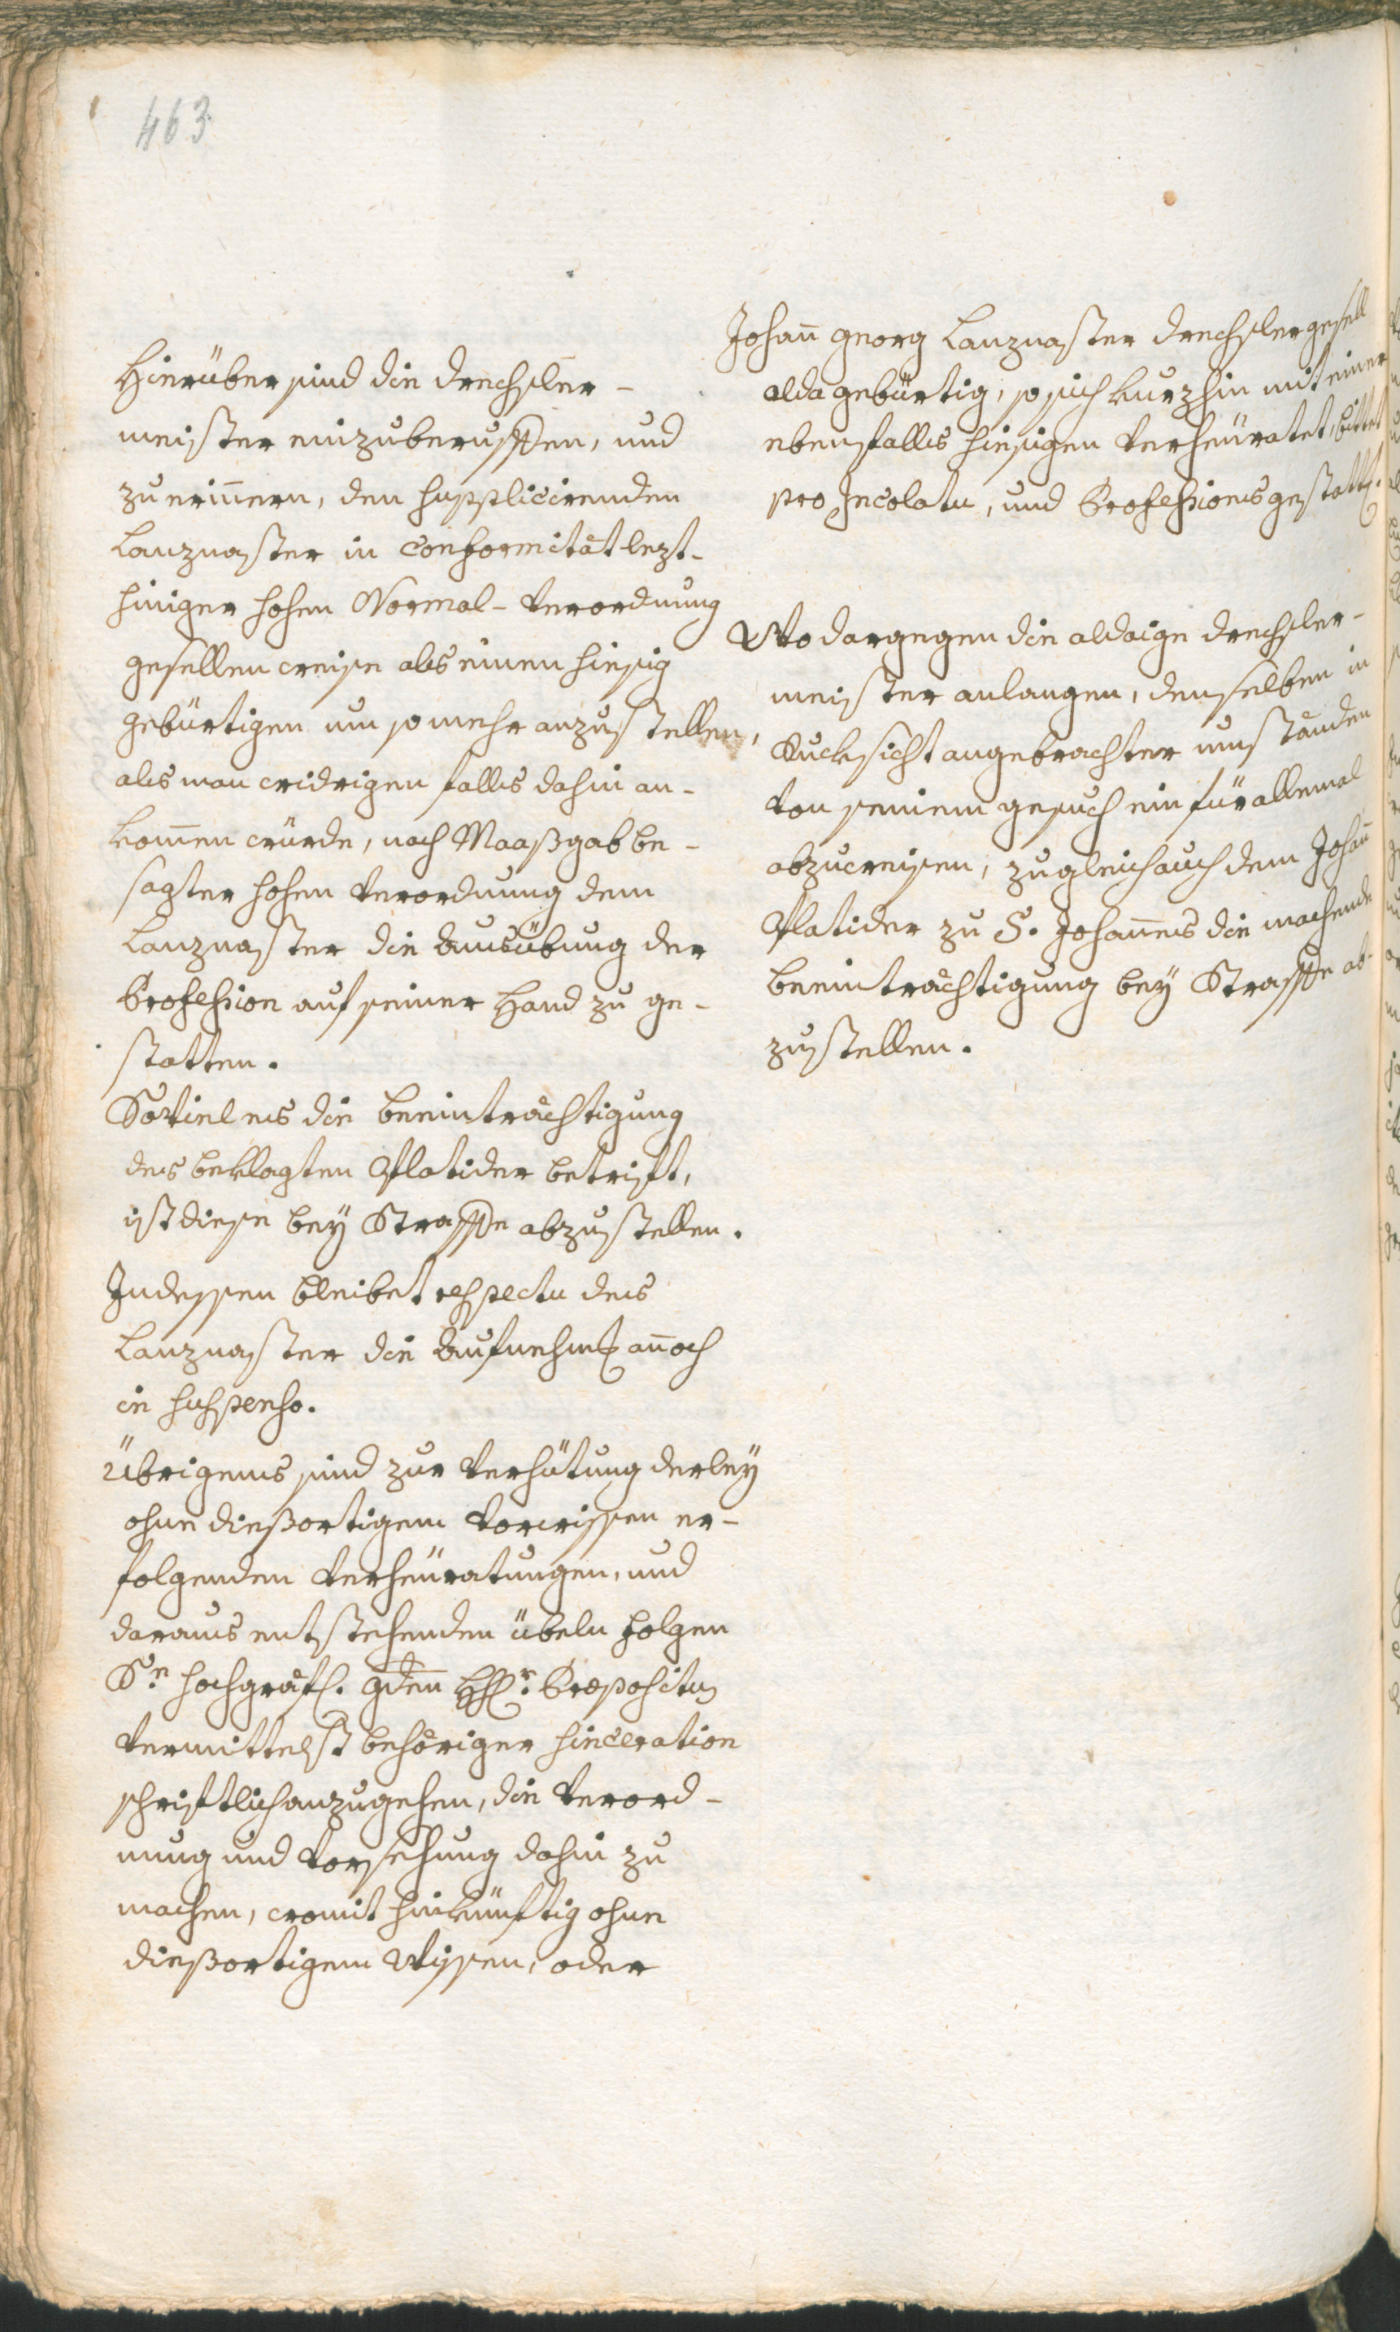 463
Hierüber sind die Drechsler-
meister einzuberuffen, und
zu erinnern, den supplicirenden
Lanznaster in Conformität lezt-
hiniger hohen Normal-Verordnung
gesellen weise als einen hiesig
gebürtigen um so mehr anzustellen,
als man widrigen falls dahin an-
kom̅en würde, nach Maaßgab be-
sagter hohen Verordnung dem
Lanznaster die Ausübung der
Profession auf seiner Hand zu ge-
statten.
Soviel es die beeinträchtigung
des beklagten Platider betrift,
ist diese bey Straffe abzustellen.
Indessen bleibet respectu des
Lanznaster die Aufnehm̅g an̅och
in suspenso.
Übrigens sind zur Verhütung derley
ohne dießortigem Vorwissen er-
folgenden Verheüratungen, und
daraus entstehenden übeln Folgen
Sr. hochgräfl. gden Hr. Præpositus
vermittelst behöriger sinceration
schriftlich anzugehen, die Verord-
nung und Vorsehung dahin zu
machen, womit hinkünftig ohne
dießortigem Wissen, oder
Johan̅ Georg Lanznaster Drechslergesell
alda gebürtig, so sich kurzhin mit einer
ebenfalls hiesigen verheüratet, bittet
pro Incolatu, und Professions gestattg.
Wo dargegen die aldaige Drechsler-
meister anlangen, denselben in
Rucksicht angebrachter umständen
von seinem gesuch ein für allemal
abzuweisen, zugleich auch dem Johan̅
Platider zu S. Johan̅es die machende
beeinträchtigung bey Straffe ab-
zustellen.